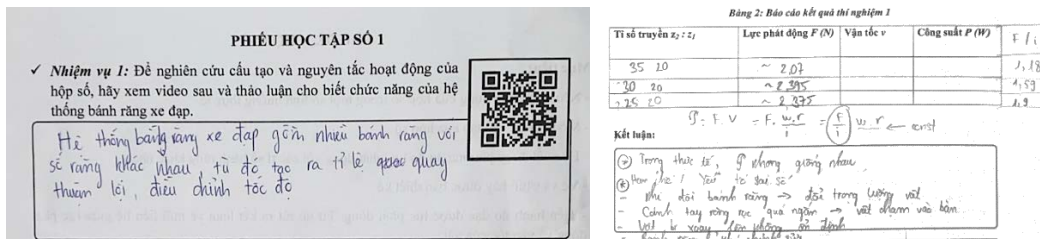 PHIẾU HỌC TẬP SỐ 1
✓ Nhiệm vụ 1: Để nghiên cứu cấu tạo và nguyên tắc hoạt động của
hộp số, hãy xem video sau và thảo luận cho biết chức năng của hệ
thống bánh răng xe đạp.
Hệ thống bánh răng xe đạp gồm nhiều bánh răng với
số răng khác nhau, từ đó tạo ra tỉ lệ quay
thuận lợi, điều chỉnh tốc độ
Bảng 2: Báo cáo kết quả thí nghiệm 1
Tỉ số truyền z₂ : z₁ Lực phát động F (N) Vận tốc v Công suất P (W) F/i
35 20 ~ 2,07 1,18
30 20 ~ 2,395 1,59
25 20 ~ 2,375 1,9
P = F. V = F. w.r/i = (F/i) w.r ← const
Kết luận:
Trong thực tế, P không giống nhau
Hạn chế / Yếu tố sai số
- Khi đổi bánh răng → đổi trọng lượng vật
- Cánh tay ròng rọc quá ngắn → vật chạm vào bàn
- Vật bị xoay, không ổn định